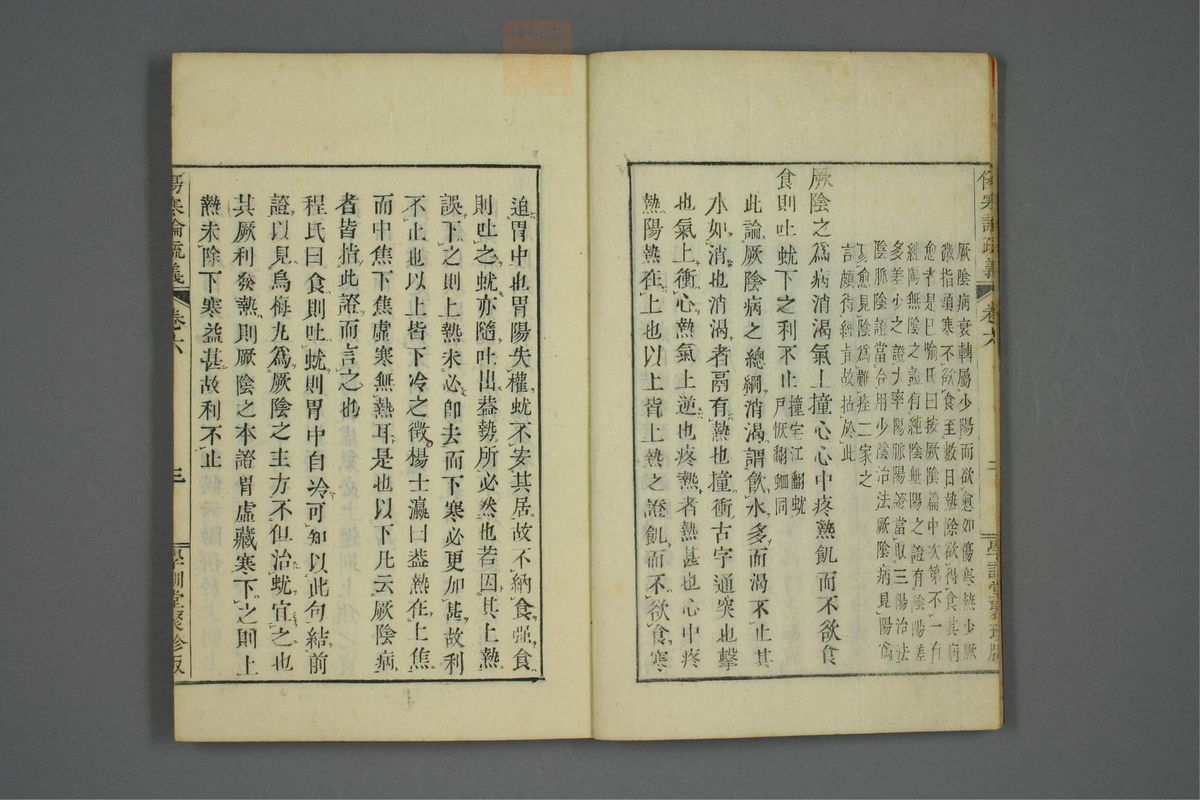 傷寒論疏義
卷六
學訓堂聚珍版
厥陰病衰轉屬少陽而欲愈如傷寒熱少厥
微指頭寒不欲食至數日熱除欲得食其病
愈者是已喻氏曰按厥陰篇中次第不一有
純陽無陰之證有純陰無陽之證有陰陽差
多差少之證大率陽脈陽證當取三陽治法
陰脈陰證當合用少陰治法厥陰病見陽爲
易愈見陰爲難痊二家之
言頗得經旨故拈於此
厥陰之爲病消渴氣上撞心心中疼熱飢而不欲食
食則吐蚘下之利不止撞宅江翻蚘
尸恢翻蛔同
此論厥陰病之總綱消渴謂飲水多而渴不止其
水如消也消渴者鬲有熱也撞衝古字通突也擊
也氣上衝心熱氣上逆也疼熱者熱甚也心中疼
熱陽熱在上也以上皆上熱之證飢而不欲食寒
追胃中也胃陽失權蚘不安其居故不納食強食
則吐之蚘亦隨吐出蓋勢所必然也若因其上熱
誤下之則上熱未必卽去而下寒必更加甚故利
不止也以上皆下冷之徵楊士瀛曰蓋熱在上焦
而中焦下焦虛寒無熱耳是也以下凡云厥陰病
者皆指此證而言之也
程氏曰食則吐蚘則胃中自冷可知以此句結前
證以見烏梅丸爲厥陰之主方不但治蚘宜之也
其厥利發熱則厥陰之本證胃虛藏寒下之則上
熱未除下寒益甚故利不止
傷寒論疏義
卷六
三
學訓堂聚珍版